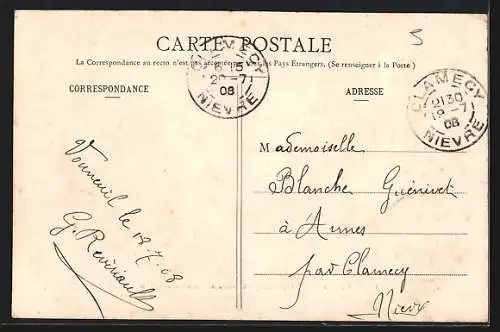 5
CARTE POSTALE
La Correspondance au recto n'est pas acceptée par tous les Pays Étrangers. (Se renseigner à la Poste)
CORRESPONDANCE
ADRESSE
CLAMECY
6 15
20 -7
08
NIEVRE
CLAMECY
21 30
19 -7
08
NIEVRE
Vouneuil le 18.7.08
G.
Mademoiselle
Blanche Guénivet
à Armes
par Clamecy
Nièvre